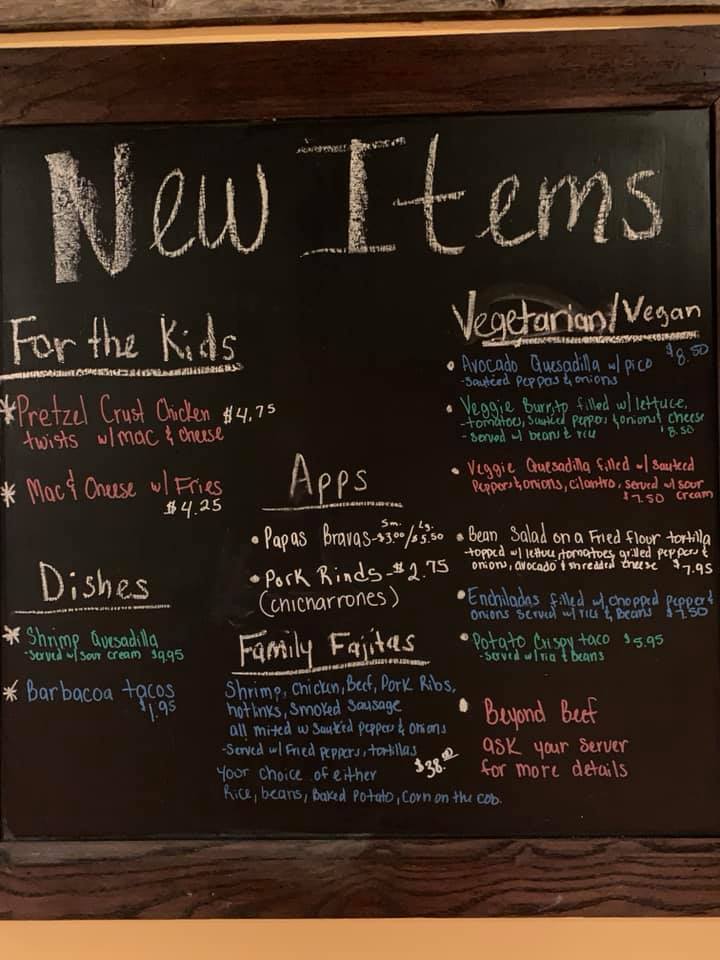 New Items
For the Kids
*Pretzel Crust Chicken $4.75
twists w/mac & cheese
* Mac & Cheese w/ Fries
$4.25
Dishes
* Shrimp Quesadilla
-Served w/ sour cream $9.95
* Barbacoa tacos
$1.95
Apps
Sm. Lg.
• Papas Bravas-$3.00/$5.50
• Pork Rinds-$2.75
(chicharrones)
Family Fajitas
Shrimp, Chicken, Beef, Pork Ribs,
hotlinks, Smoked Sausage
all mixed w Sautéed Pepper & Onions
-Served w/ Fried Peppers, tortillas
$38.00
your choice of either
Rice, beans, Baked Potato, Corn on the cob.
Vegetarian/Vegan
• Avocado Quesadilla w/ pico $8.50
-Sauteed Peppers & onions
• Veggie Burrito filled w/ lettuce,
-tomatoes, Sauteed Peppers & onions & cheese
-Served w/ beans & rice $8.50
• Veggie Quesadilla filled w/ Sauteed
Peppers & onions, cilantro, served w/ sour
$7.50 cream
• Bean Salad on a Fried flour tortilla
-topped w/ lettuce, tomatoes, grilled peppers &
onions, avocado & shredded cheese $7.95
• Enchiladas filled w/ chopped pepper &
onions Served w/ rice & Beans $7.50
• Potato Crispy taco $5.95
-Served w/ rice & Beans
• Beyond Beef
ask your server
for more details